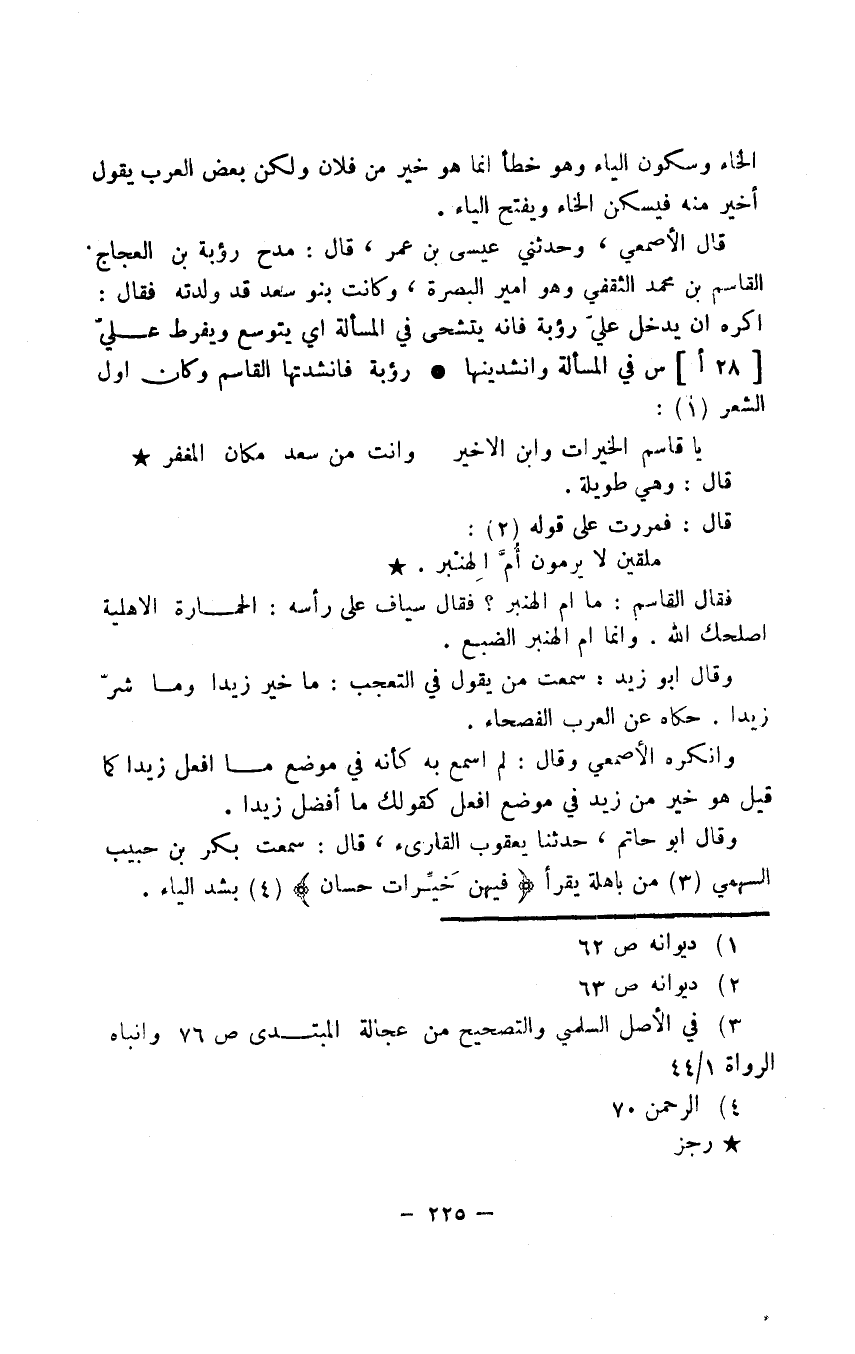 الخاء وسكون الياء وهو خطأ انما هو خير من فلان ولكن بعض العرب يقول
أخير منه فيسكن الخاء ويفتح الياء .
قال الأصمعي ، وحدثني عيسى بن عمر ، قال : مدح رؤبة بن العجاج
القاسم بن محمد الثقفي وهو امير البصرة ، وكانت بنو سعد قد ولدته فقال :
اكره ان يدخل عليَ رؤبة فانه يتشحى في المسألة اي يتوسع ويفرط عليّ
[ ٢٨ أ ] س في المسألة وانشدينها ● رؤبة فانشدتها القاسم وكان اول
الشعر (١) :
يا قاسم الخيرات وابن الاخير وانت من سعد مكان المغفر ★
قال : وهي طويلة .
قال : فمررت على قوله (٢) :
ملقين لا يرمون أُمَّ الهِنْبر . ★
فقال القاسم : ما ام الهنبر ؟ فقال سياف على رأسه : الحمارة الاهلية
اصلحك الله . وانما ام الهنبر الضبع .
وقال ابو زيد : سمعت من يقول في التعجب : ما خير زيدا وما شرّ
زيدا . حكاه عن العرب الفصحاء .
وانكره الأصمعي وقال : لم اسمع به كأنه في موضع ما افعل زيدا كما
قيل هو خير من زيد في موضع افعل كقولك ما أفضل زيدا .
وقال ابو حاتم ، حدثنا يعقوب القارىء ، قال : سمعت بكر بن حبيب
السهمي (٣) من باهلة يقرأ ﴿ فيهن خَيِّرات حسان ﴾ (٤) بشد الياء .
١) ديوانه ص ٦٢
٢) ديوانه ص ٦٣
٣) في الأصل السلمي والتصحيح من عجالة المبتدى ص ٧٦ وانباه
الرواة ٤٤/١
٤) الرحمن ٧٠
★ رجز
– ٢٢٥ –